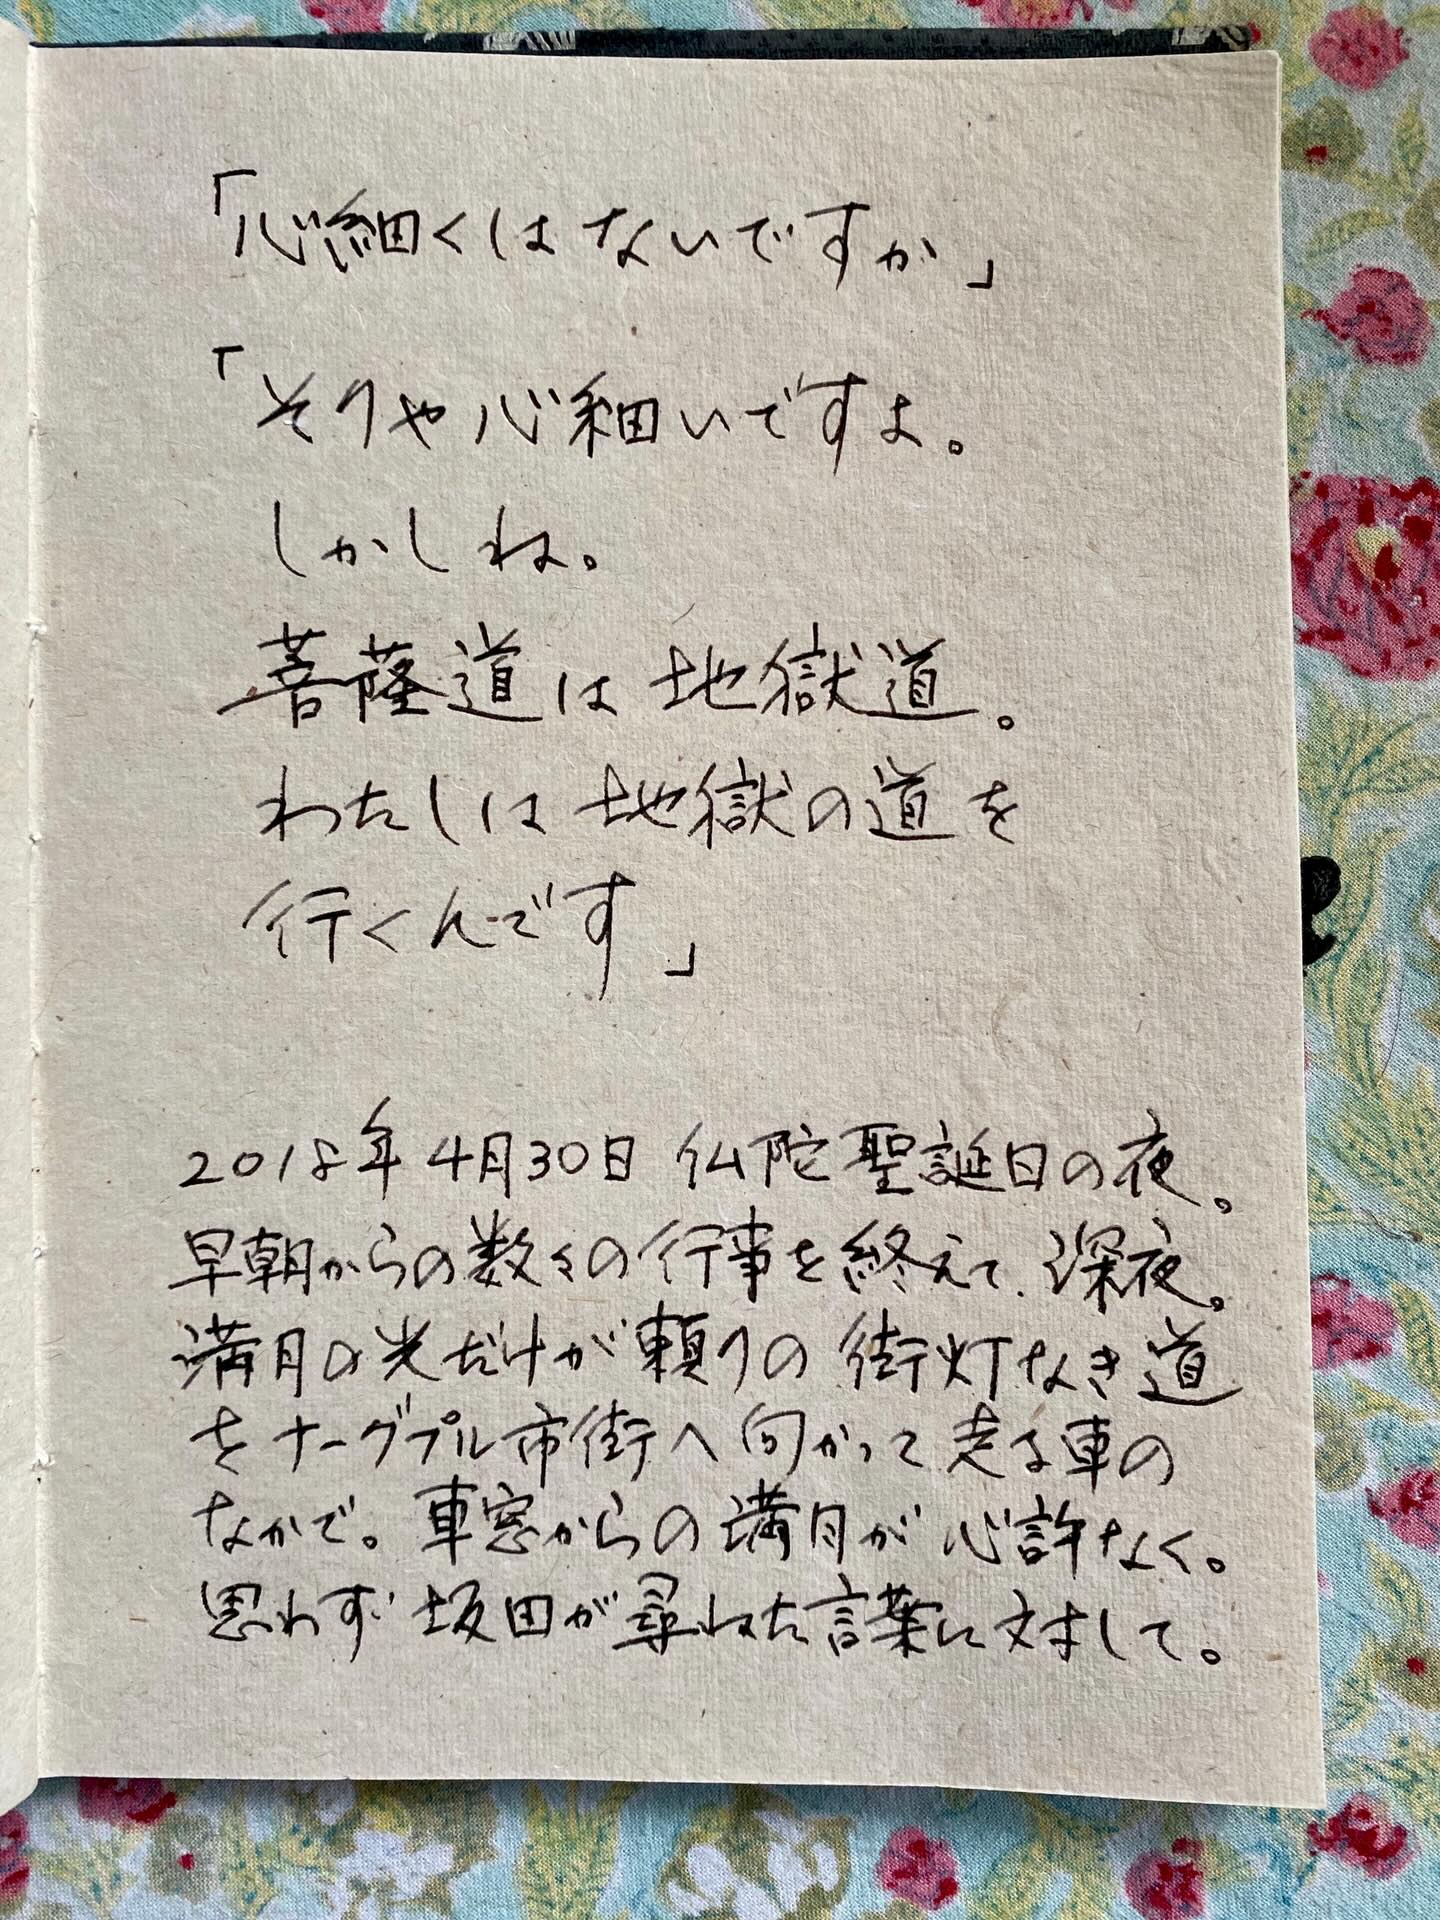 「心細くはないですか」
「そりゃ心細いですよ。
しかしね。
菩薩道は地獄道。
わたしは地獄の道を
行くんです」
2018年4月30日 仏陀聖誕日の夜。
早朝からの数々の行事を終えて、深夜。
満月の光だけが頼りの街灯なき道
をナーグプル市街へ向かって走る車の
なかで。車窓からの満月が心許なく。
思わず坂田が尋ねた言葉に対して。